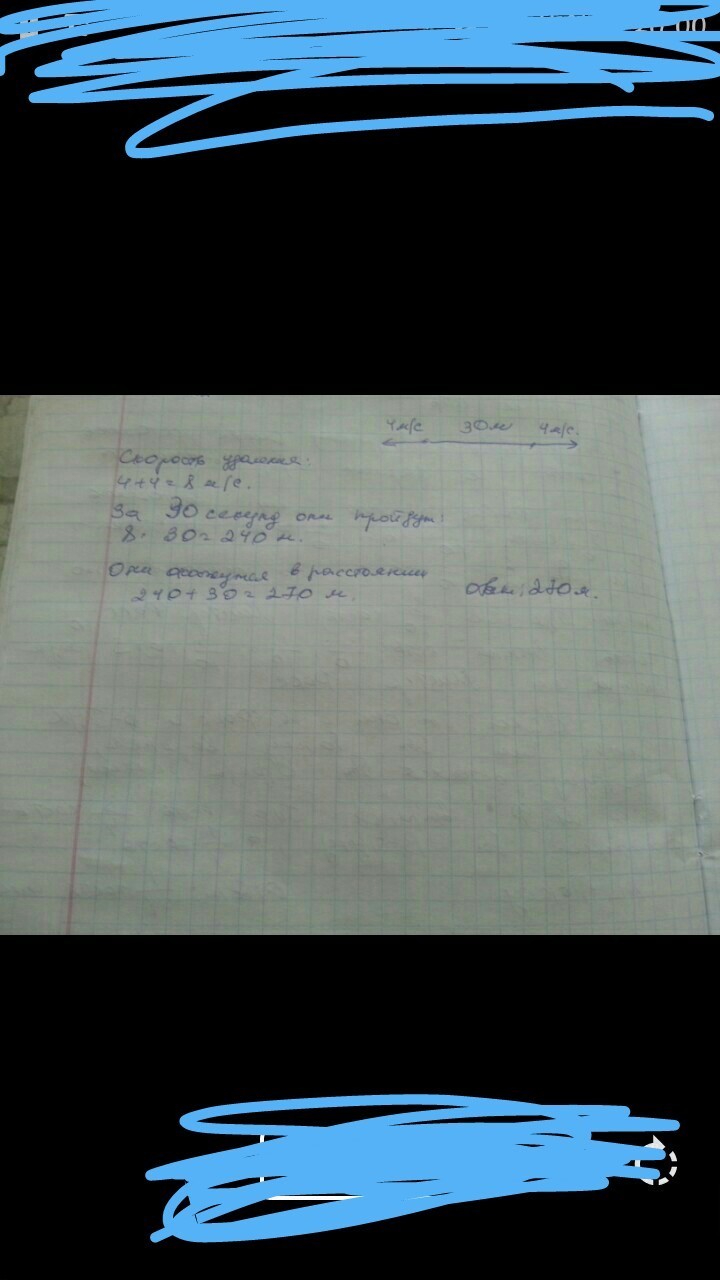 4м/с 30м 4м/с.
Скорость удаления:
4+4=8 м/с.
За 30 секунд они пройдут:
8· 30=240 м.
Они окажутся в расстоянии
240+30=270 м. Ответ: 270м.